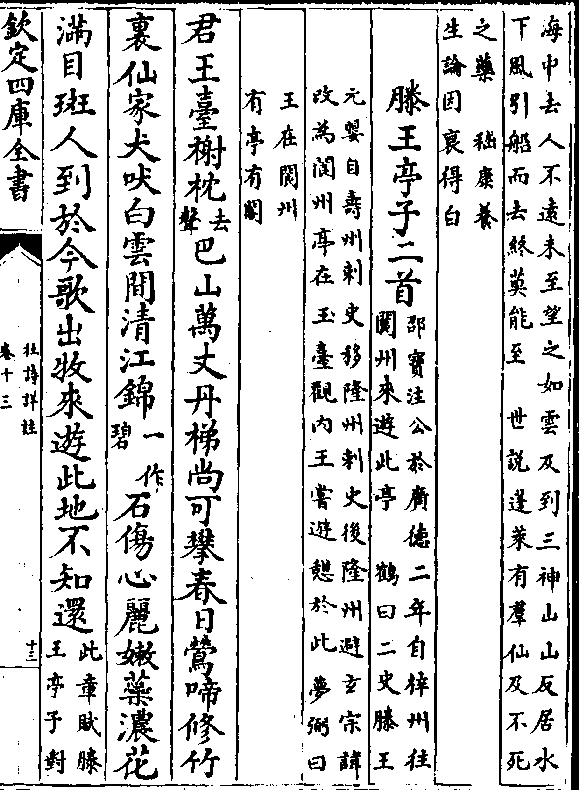 海中去人不遠未至望之如雲及到三神山山反居水
下風引船而去終莫能至　世説蓬萊有羣仙及不死
之藥　嵇康養
生論因衰得白
滕王亭子二首
邵寶注公於廣德二年自梓州往
閬州來遊此亭　鶴曰二史滕王
元嬰自壽州刺史移隆州刺史後隆州避玄宗諱
改為閬州亭在玉臺觀内王嘗遊憩於此　夢弼曰
王在閬州
有亭有閣
君王臺榭枕去聲巴山萬丈丹梯尚可攀春日鶯啼修竹
裏仙家犬吠白雲間清江錦一作碧石傷心麗嫩蘂濃花
滿目斑人到於今歌出牧來遊此地不知還
此章賦滕
王亭子對
欽定四庫全書
杜詩詳註
卷十三
十三